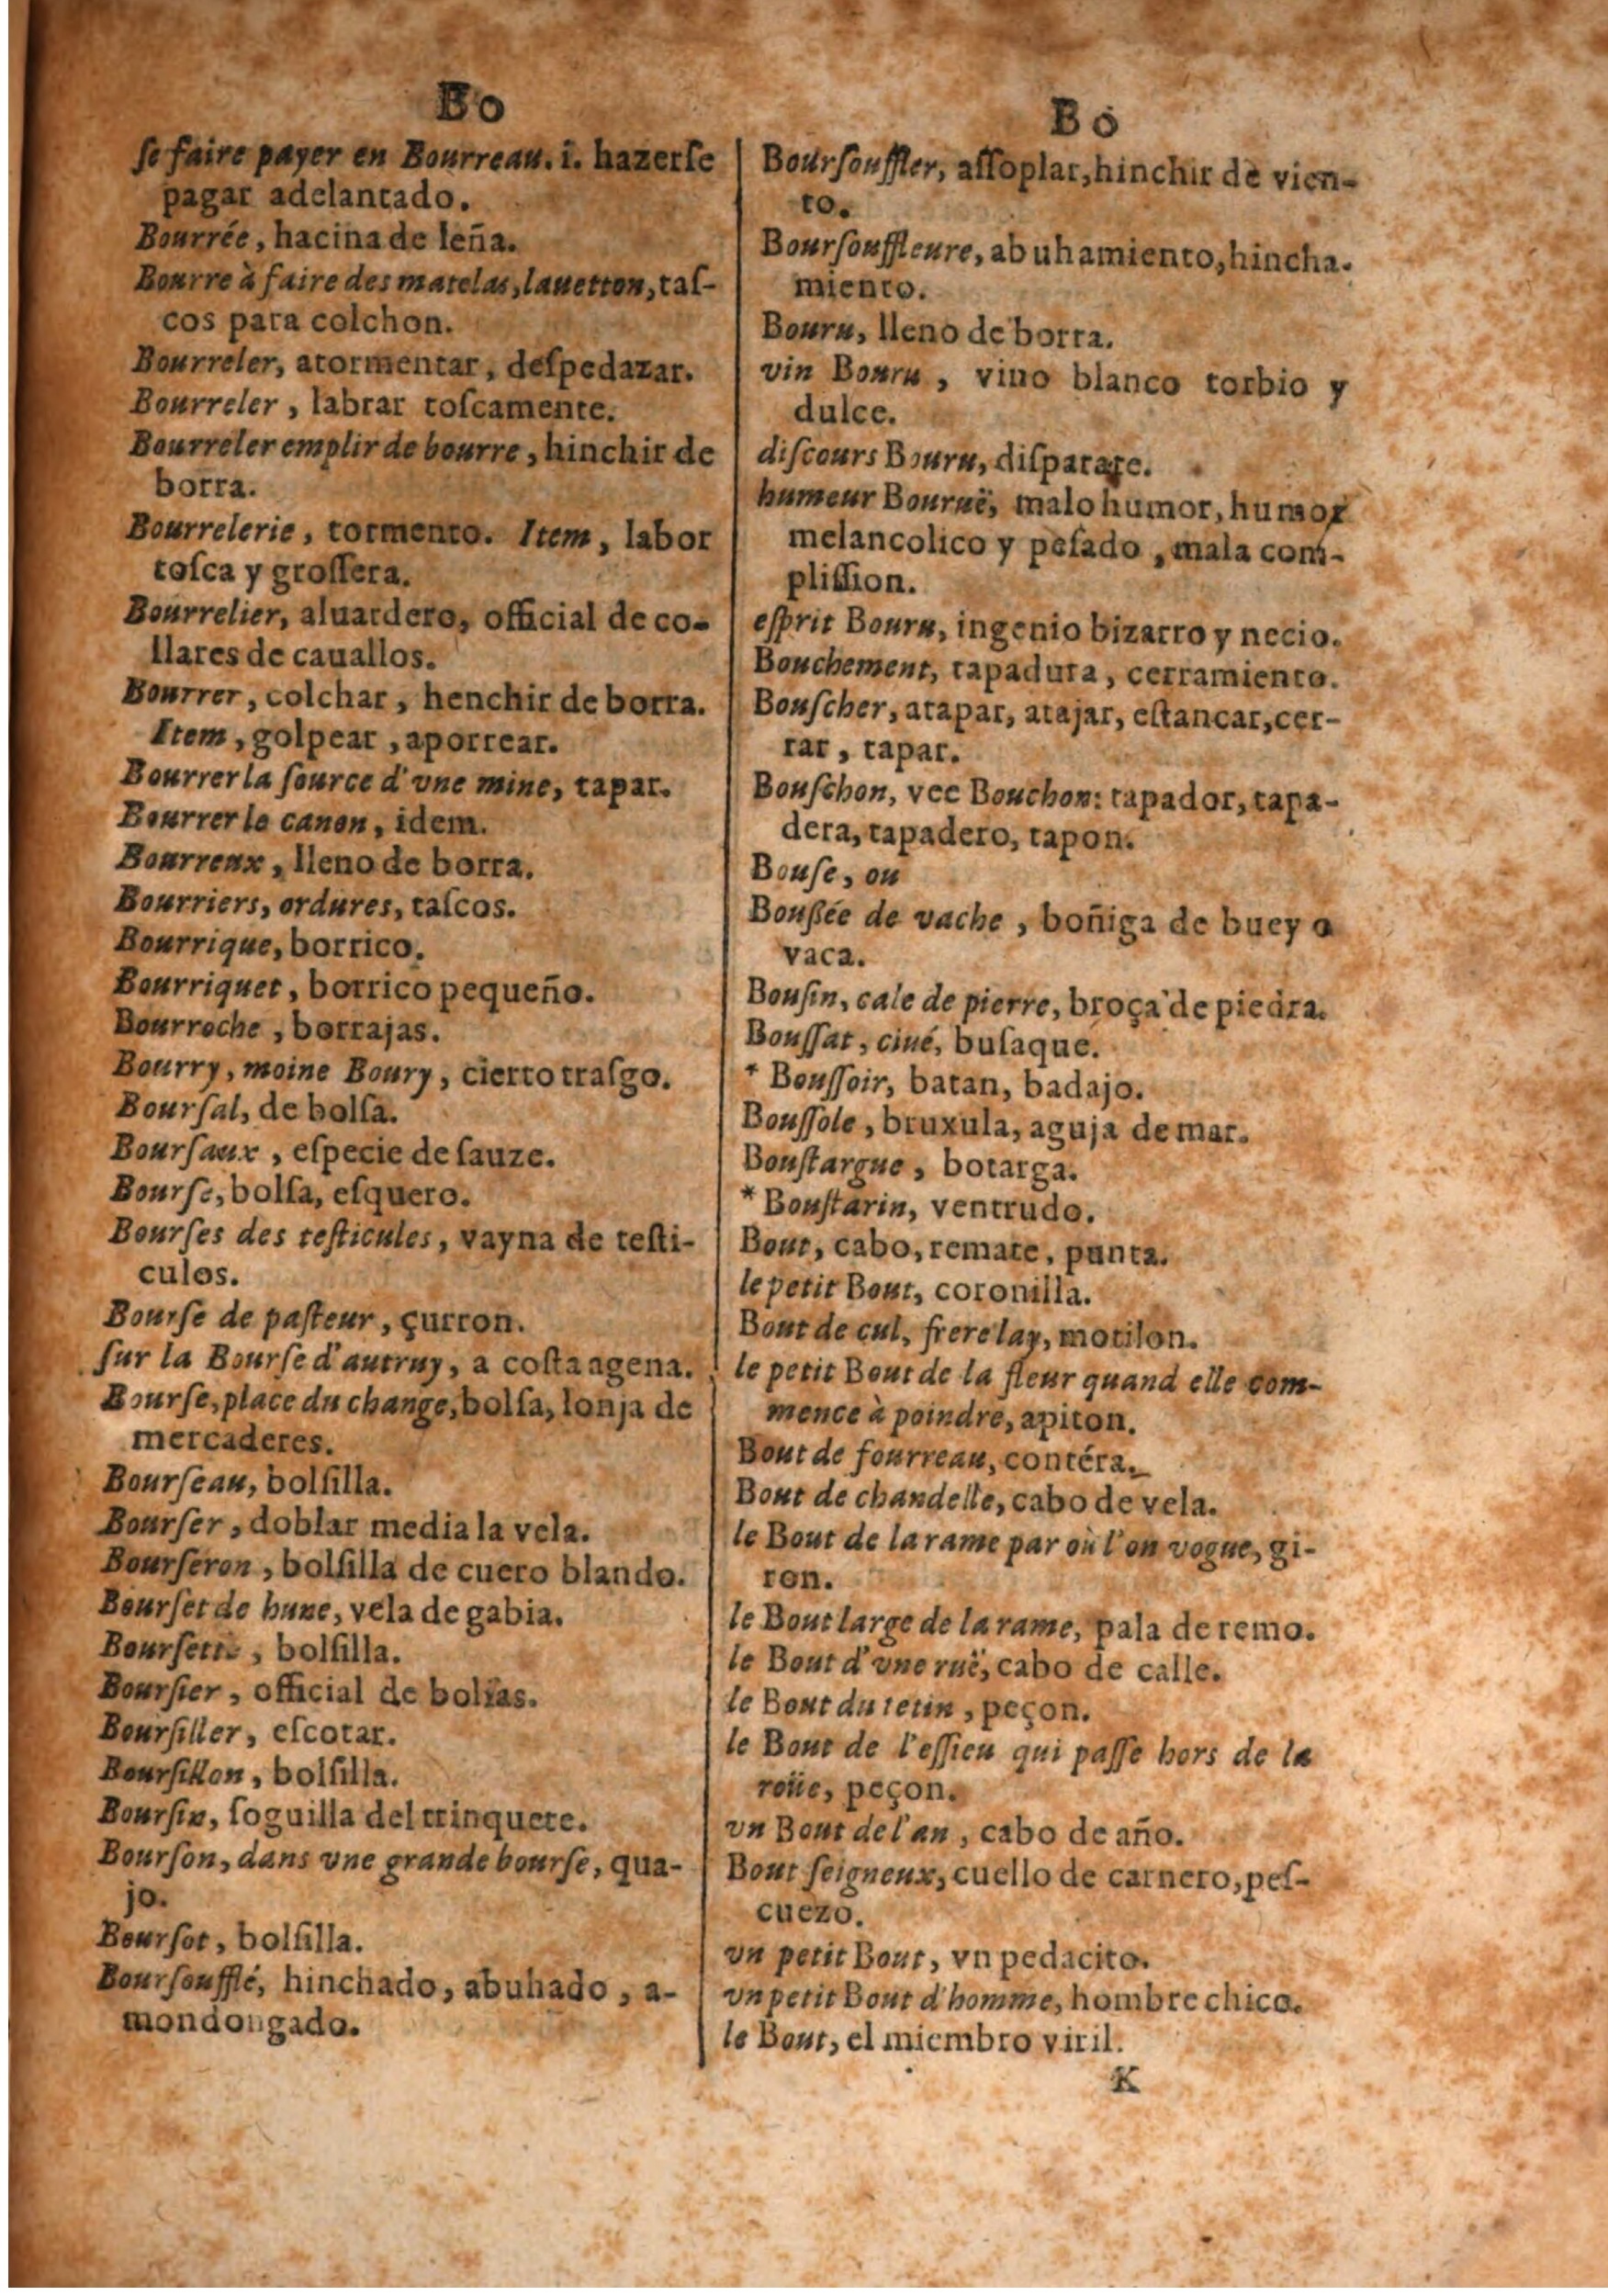 Bo
ſe faire payer en Bourreau. i. hazerſe
pagar adelantado.
Bourrée, hacina de leña.
Bourre à faire des matelas, lauetton, taſ-
cos para colchon.
Bourreler, atormentar, deſpedazar.
Bourreler, labrar toſcamente.
Bourreler emplir de bourre, hinchir de
borra.
Bourrelerie, tormento. Item, labor
toſca y groſſera.
Bourrelier, aluardero, official de co-
llares de cauallos.
Bourrer, colchar, henchir de borra.
Item, golpear, aporrear.
Bourrer la ſource d'vne mine, tapar.
Bourrer le canon, idem.
Bourreux, lleno de borra.
Bourriers, ordures, taſcos.
Bourrique, borrico.
Bourriquet, borrico pequeño.
Bourroche, borrajas.
Bourry, moine Boury, cierto traſgo.
Bourſal, de bolſa.
Bourſaux, eſpecie de ſauze.
Bourſe, bolſa, eſquero.
Bourſes des teſticules, vayna de teſti-
culos.
Bourſe de paſteur, çurron.
ſur la Bourſe d'autruy, a coſta agena.
Bourſe, place du change, bolſa, lonja de
mercaderes.
Bourſeau, bolſilla.
Bourſer, doblar media la vela.
Bourſeron, bolſilla de cuero blando.
Bourſet de hune, vela de gabia.
Bourſette, bolſilla.
Bourſier, official de bolſas.
Bourſiller, eſcotar.
Bourſillon, bolſilla.
Bourſin, ſoguilla del trinquete.
Bourſon, dans vne grande bourſe, qua-
jo.
Bourſot, bolſilla.
Bourſoufflé, hinchado, abuhado, a-
mondongado.
Bo
Bourſouffler, aſſoplar, hinchir de vien-
to.
Bourſouffleure, abuhamiento, hincha-
miento.
Bouru, lleno de borra.
vin Bouru, vino blanco torbio y
dulce.
diſcours Bouru, diſparate.
humeur Bouruë, malo humor, humor
melancolico y peſado, mala com-
pliſſion.
eſprit Bouru, ingenio bizarro y necio.
Bouchement, tapadura, cerramiento.
Bouſcher, atapar, atajar, eſtancar, cer-
rar, tapar.
Bouſchon, vee Bouchon: tapador, tapa-
dera, tapadero, tapon.
Bouſe, ou
Bouſée de vache, boñiga de buey o
vaca.
Bouſin, cale de pierre, broça de piedra.
Bouſſat, ciué, buſaque.
* Bouſſoir, batan, badajo.
Bouſſole, bruxula, aguja de mar.
Bouſtargue, botarga.
* Bouſtarin, ventrudo.
Bout, cabo, remate, punta.
le petit Bout, coronilla.
Bout de cul, frere lay, motilon.
le petit Bout de la fleur quand elle com-
mence à poindre, apiton.
Bout de fourreau, contéra.
Bout de chandelle, cabo de vela.
le Bout de la rame par où l'on vogue, gi-
ron.
le Bout large de la rame, pala de remo.
le Bout d'vne ruë, cabo de calle.
le Bout du tetin, peçon.
le Bout de l'eſſieu qui paſſe hors de la
roüe, peçon.
vn Bout de l'an, cabo de año.
Bout ſeigneux, cuello de carnero, peſ-
cuezo.
vn petit Bout, vn pedacito.
vn petit Bout d'homme, hombre chico.
le Bout, el miembro viril.
K